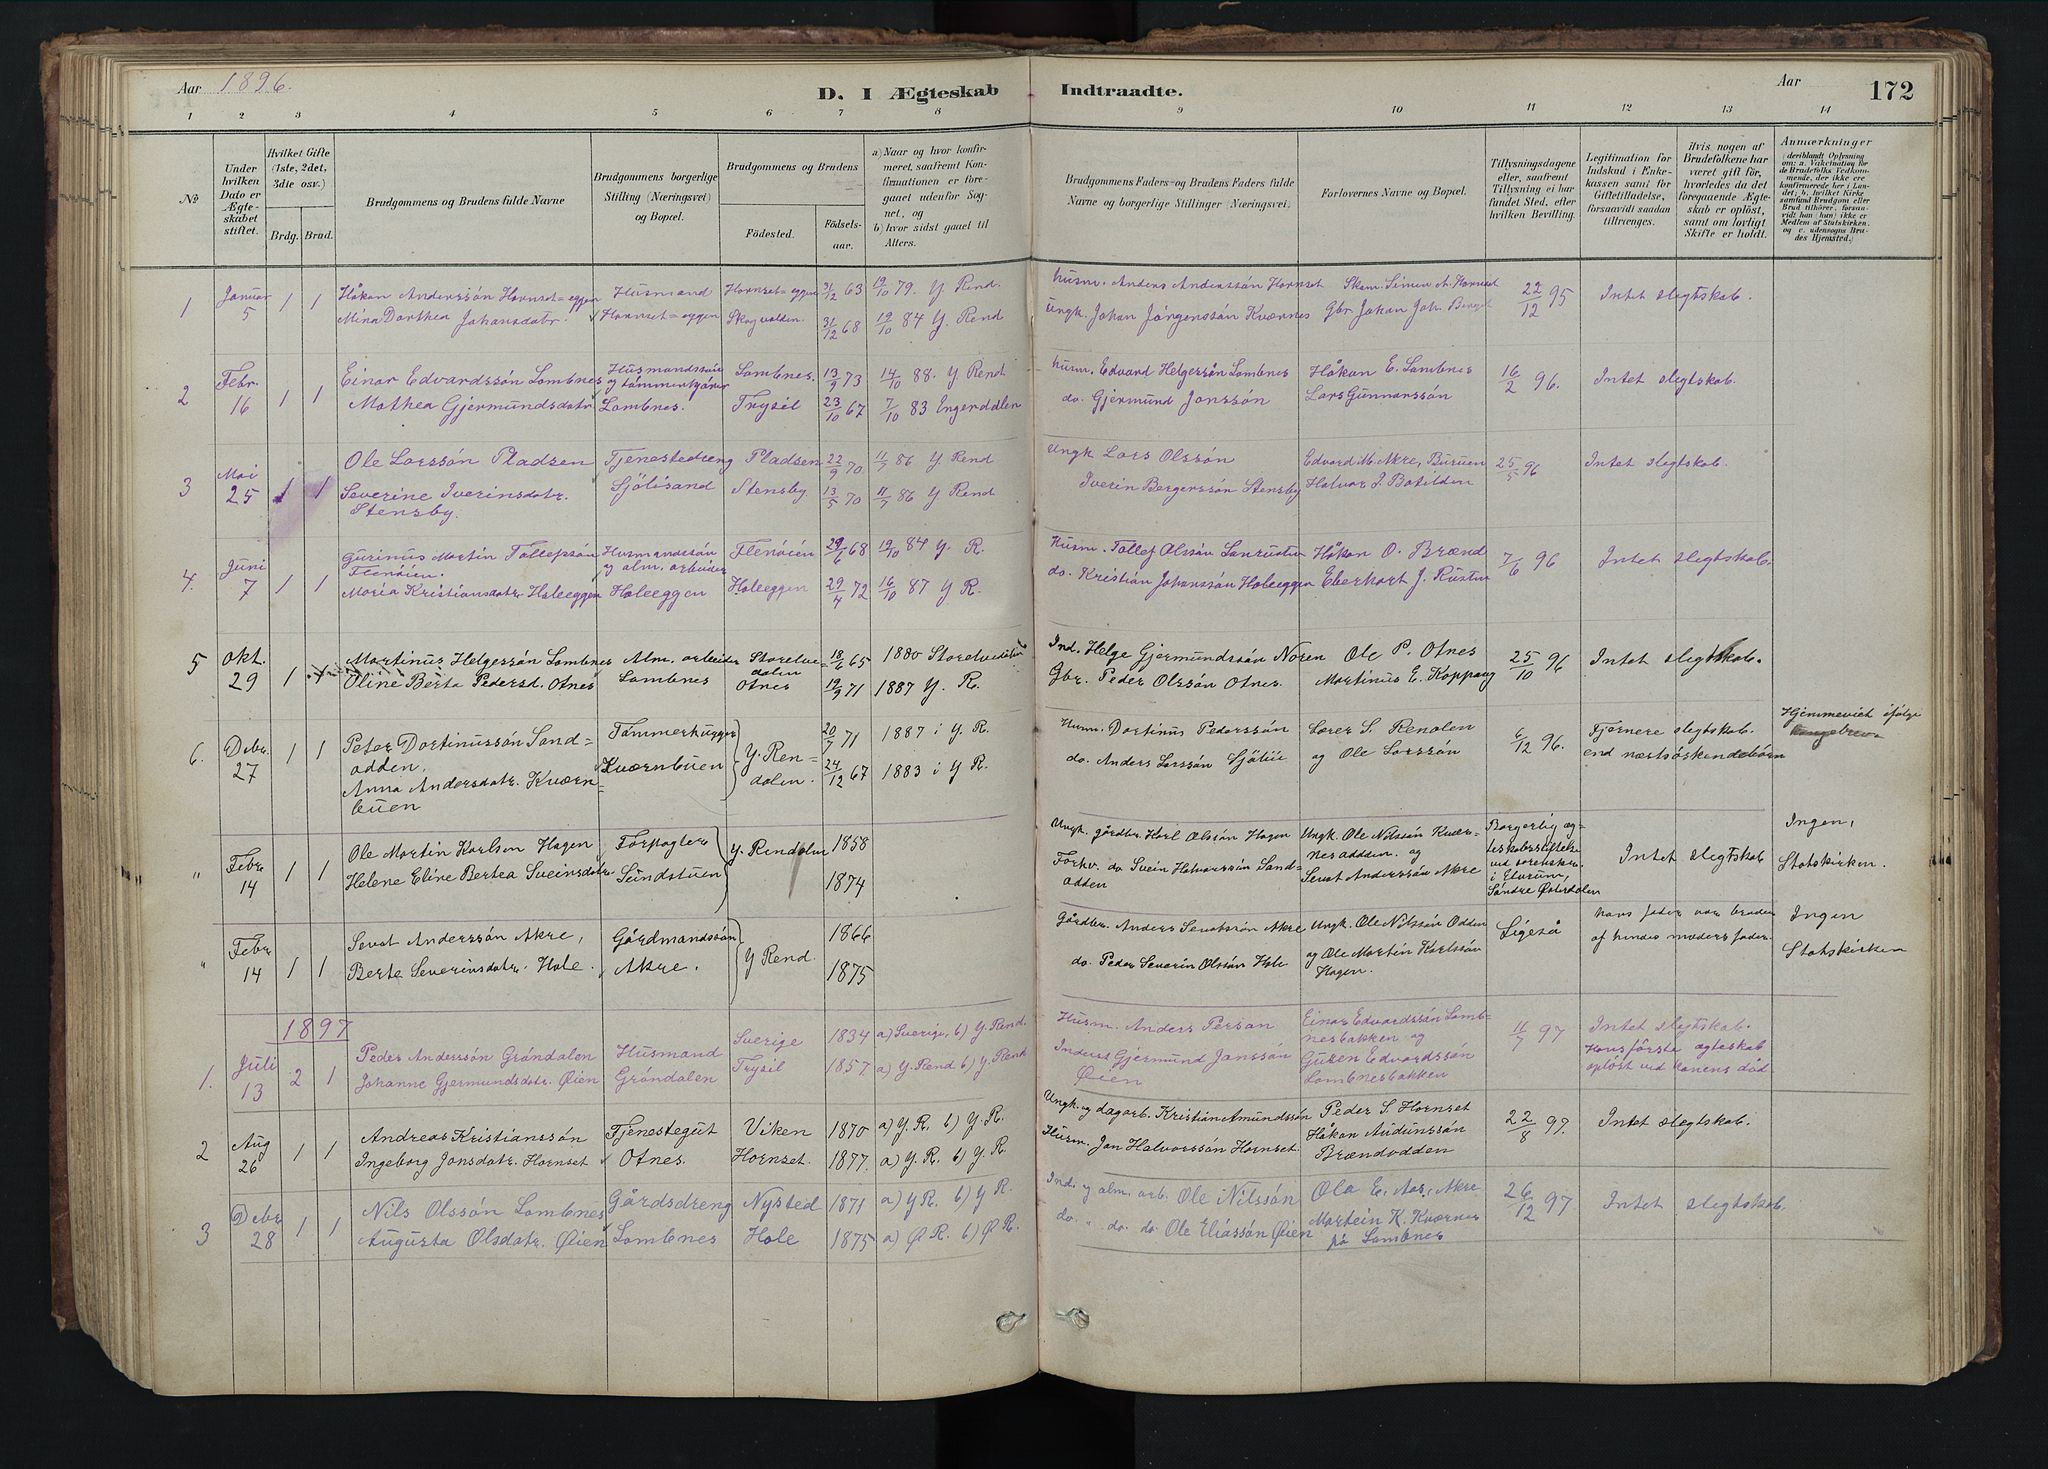 Aar 1896.
D. I Ægteskab Indtraadte.
Aar
172
1 2 3 4 5 6 7 8 9 10 11 12 13 14
№
Under hvilken Dato er Ægteskabet stiftet.
Hvilket Gifte (1ste, 2det, 3die osv.)
Brdg. Brud.
Brudgommens og Brudens fulde Navne
Brudgommens borgerlige Stilling (Næringsvei) og Bopæl.
Brudgommens og Brudens
Fødested.
Fødselsaar.
a) Naar og hvor konfirmeret, saafremt Konfirmationen er foregaaet udenfor Sognet, og
b) hvor sidst gaaet til Alters.
Brudgommens Faders og Brudens Faders fulde Navne og borgerlige Stillinger (Næringsvei)
Forlovernes Navne og Bopæl.
Tillysningsdagene eller, saafremt Tillysning ei har fundet Sted, efter hvilken Bevilling.
Legitimation for Indskud i Enkekassen samt for Giftetilladelse, forsaavidt saadan tiltrænges.
Hvis nogen af Brudefolkene har været gift før, hvorledes da det foregaaende Ægteskab er opløst, samt om lovligt Skifte er holdt.
Anmærkninger
(deriblandt Oplysning om: a. Vakcination for de Brudefolks Vedkommende, der ikke ere konfirmerede her i Landet; b. hvilket Kirkesamfund Brudgom eller Brud tilhører, forsaavidt han (hun) ikke er Medlem af Statskirken, og c. udensogns Brudes Hjemsted.)
1 Januar 5 1 1 Håkan Anderssön Hornset=eggen Husmand Hornset=eggen 31/12 63 19/10 79. Y Rend. husm. Anders Anderssön Hornset Skom. Simen A. Hornset 22/12 95 Intet slegtskab.
Mina Dorthea Johansdatr. Hornset=eggen Skogvolden. 31/12 68 19/10 84 Y. Rend Ungk. Johan Jörgenssön Kværnes Gbr. Johan Joh. Berget
2 Febr. 16 1 1 Einar Edvardssön Lombnes Husmandssön og tömmerkjörer Lombnes. 13/9 73 14/10 88. Y. Rend husm. Edvard Helgessön Lombnes Håkan E. Lombnes 16/2 96. Intet slegtskab.
Mathea Gjermundsdatr Lombnes. Trysil 23/10 67 7/10 83 Engerdalen do. Gjermund Jonssön Lars Gunnarssön
3 Mai 25 1 1 Ole Larssön Pladsen Tjenestedreng Pladsen 22/9 70 11/7 86 Y. Rend Ungk Lars Olssön Edvard M. Akre, Buruen 25/5 96 Intet slegtskab.
Severine Iverinsdatr. Sjölisand Stensby 13/5 70 11/7 86 Y. Rend Iverin Bergerssön Stensby Halvar J. Botilden
Stensby.
4. Juni 7 1 1 Gurinus Martin Tollefsön Husmandssön Flenöien 29/6 68 19/10 84 Y. R. Husm. Tollef Olssön Håkan O. Brænd 7/6 96 Intet slegtskab.
Flenöien. og alm. arbeider
Maria Kristiansdatr. Holeeggen Holeeggen Holeeggen 29/4 72 16/10 87 Y R. do. Kristian Johanssön Holeeggen Eberhart J. Rusten
5 Okt. 29 1 Martinus Helgessön Lombnes Alm. arbeider Storelvedalen 18/6 65 1880 Storelvedalen Ind. Helge Gjermundssön Noren Ole P. Otnes 25/10 96 Intet slegtskab.
Oline Berta Pedersd. Otnes Lombnes Otnes 19/9 71 1887 Y. R. Gbr. Peder Olssön Otnes. Martinus E. Koppang
6. Debr. 27 1 1 Peter Dortinussön Sand= Tömmerhugger Y. Ren= 20/7 71 1887 i Y. R. Husm. Dortinus Pederssön Lærer S. Renolen 6/12 96. Fjernere slegtskab. Hjemmeviet ifølge
odden. Kværnbuen dalen. end næstsöskendebörn
Anna Andersdatr. Kværn= 24/12 67 1883 i Y R. do. Anders Larssön Sjölii og Ole Larssön
buen
" Febr 14 1 1 Ole Martin Karlsen Hagen Forpagter Y. Rendalen 1858 Ungk. gårdbr. Karl Olssön Hagen Ungk. Ole Nilssön Kvær= Borgerlig æg= Intet slegtskab Ingen,
Helene Eline Bertea Sveinsdatr. Sundstuen 1874 Forhv. do Svein Halvorssön Sand= nesodden. og teskabsstiftelse Statskirken.
odden Sevat Anderssön Akre ved sorenskr. i Elverum, Söndre Østerdalen
" Febr 14 1 1 Sevat Anderssön Akre, Gårdmandssön Y Rend. 1866 Gårdbr. Anders Sevatssön Akre Ungk. Ole Nilssön Odden Ligeså hans fader var broder Ingen
Berte Severinsdatr. Hole. Akre. 1875 do. Peder Severin Olssön Hole og Ole Martin Karlssön af hendes moders fader. Statskirken
Hagen.
1897
1. Juli 13 2 1 Peder Anderssön Gröndalen Husmand Sverige 1834 a) Sverige, b) Y. Rend. Husm. Anders Persan Einar Edvardssön Lomb= 11/7 97 Intet slegtskab.
Johanne Gjermundsdatr. Øien Gröndalen Trysil 1857. a) Y. Rend b) Y. Rend Inderst Gjermund Janssön nesbakken og Hans förste ægteskab
Øien Guren Edvardssön oplöst ved konens död
Lombnesbakken
2 Aug 26 1 1 Andreas Kristianssön Tjenestegut Viken 1870 a) Y. R. b) Y. R. Ungk. og dagarb. Kristian Amundssön Peder S. Hornset 22/8 97. Intet slegtskab.
Ingeborg Jonsdatr. Hornset Otnes. Hornset. 1877. a) Y. R. b) Y. R Husm. Jon Halvorssön Hornset. Håkan Audunssön
Brændvodden
3 Debr 28 1 1 Nils Olssön Lombnes Gårdsdreng Nysted 1871 a) Y R. b) Y R. Ind. og alm. arb. Ole Nilssön Ola E. Aas, Akre 26/12 97 Intet slegtskab.
Augusta Olsdatr. Øien Lombnes Hole 1875 a) Ø R. b) Ø R. do. " do. do. Ole Eliassön Øien Martein K. Kværnes
på Lombnes